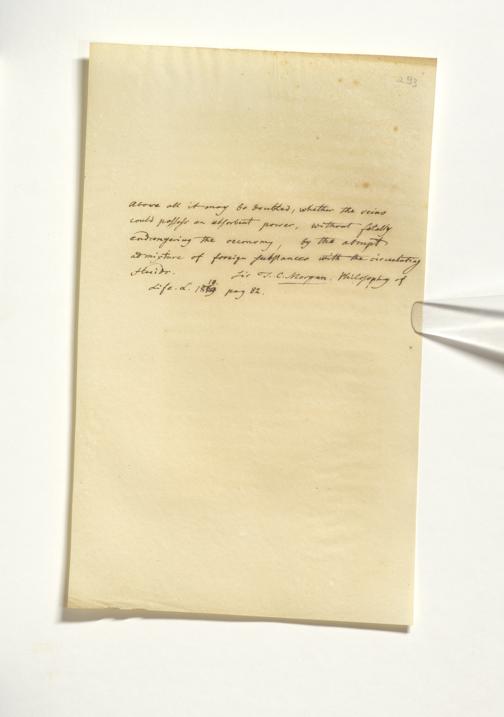 293
Above all it may be doubted, whether the veins
could possess an absorbent power, without fatally
endangering the oeconomy, by the abrupt
admixture of foreign substances with the circulating
fluids. Sir T. C. Morgan. Philosophy of
Life. L. 1819 pag 82.